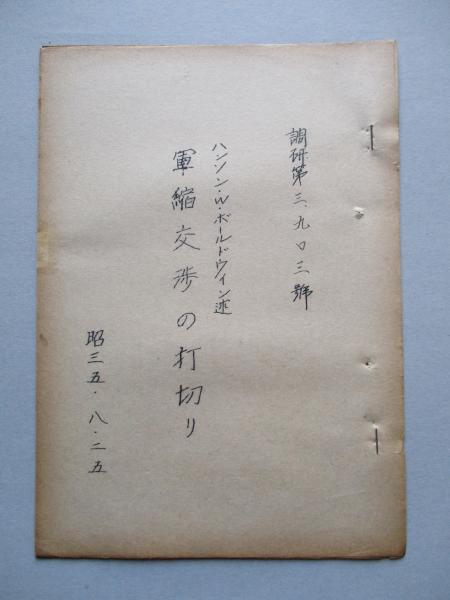 調研第三、九〇三號
ハンソン・W・ボールドウィン述
軍縮交渉の打切り
昭三五・八・二五